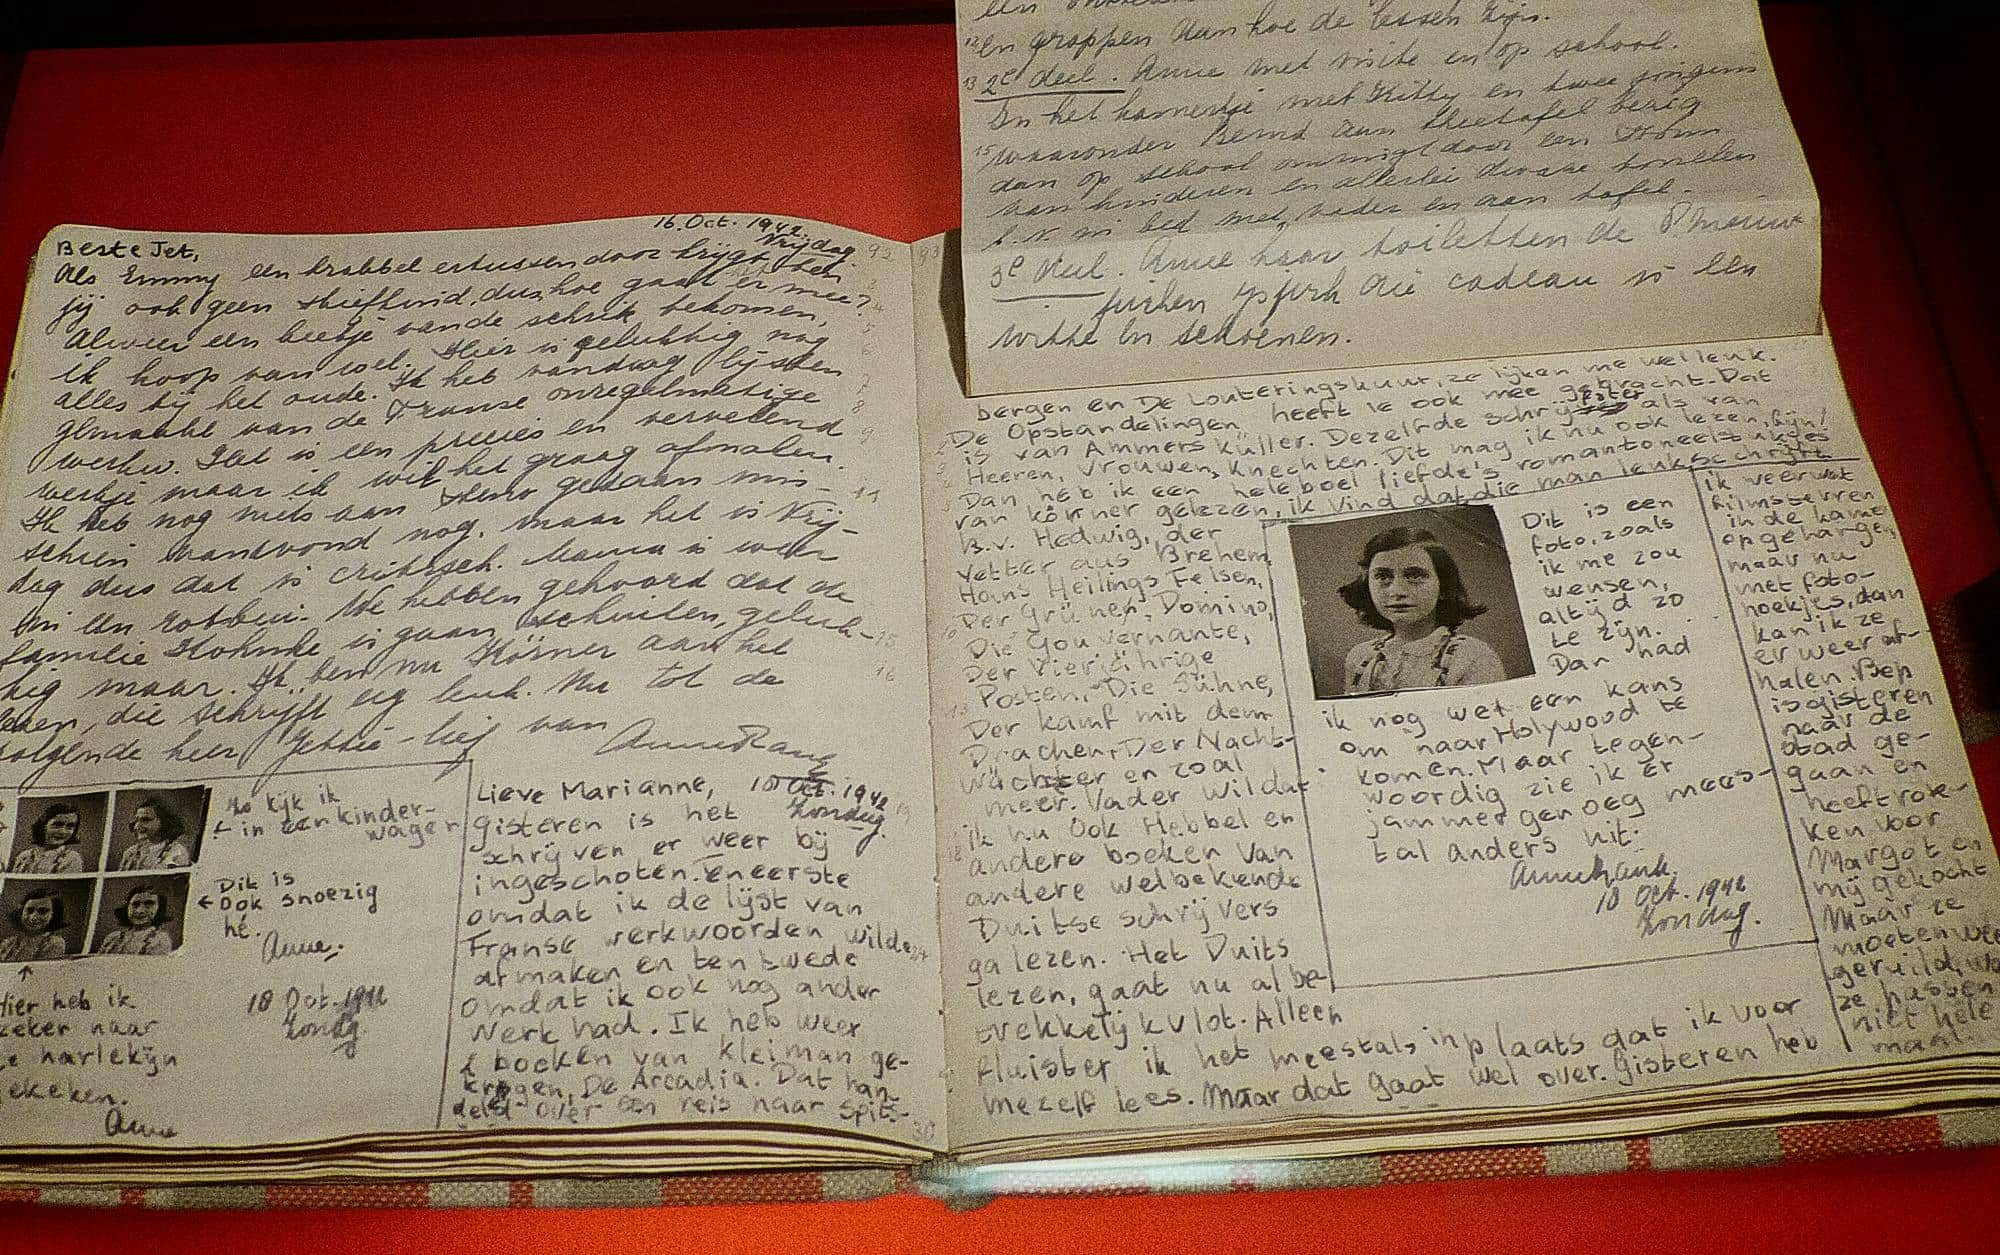 16. Oct. 1942.
Vrijdag.
Beste Jet,
Als Emmy een krabbel ertussendoor krijgt, ben
jij ook geen stiefkind, dus hoe gaat het er mee?
Alweer een beetje van de schrik bekomen,
ik hoop van wel. Hier is gelukkig nog
alles bij het oude. Ik heb vandaag lijsten
gemaakt van de Franse onregelmatige
werkw. Het is een precies en vervelend
werkje maar ik wil het graag afmaken.
Ik heb nog niets aan gedaan mis-
schien vanavond nog, maar het is Vrij-
dag dus dat is critisch. Mama is weer
in een robbui. We hebben gehoord dat de
familie Kohnke is gaan schuilen, geluk-
kig maar. Ik ben nu Körner aan het
lezen, die schrijft erg leuk. Nu tot de
volgende keer Jettie-lief van
Anne Frank
Zo kijk ik
in een kinder-
wagen
Dit is
ook snoezig
hé.
Anne.
Hier heb ik
zeker naar
de harlekijn
gekeken.
Anne
18 Oct. 1942
Zondag
Lieve Marianne, 18 Oct. 1942
Zondag.
Gisteren is het
schrijven er weer bij
ingeschoten. Ten eerste
omdat ik de lijst van
Franse werkwoorden wilde
afmaken en ten twede
omdat ik ook nog ander
werk had. Ik heb weer
2 boeken van Kleiman ge-
kregen, De Arcadia. Dat han-
delt over een reis naar Spits-
En grappen Aan hoe de lessen zijn.
2e deel. Anne met visite en op school.
In het kamertje met Kitty en twee jongens
waaronder Bernd aan theetafel bezig
dan op school omringt door een
van kinderen en allerlei dwaze
b.v. in bed met vader en aan tafel.
3e deel. Anne haar toiletten de
cadeau is een
witte en schoenen.
bergen en De Louteringskuur, ze lijken me wel leuk.
De Opstandelingen heeft ie ook mee gebracht. Dat
is van Ammers Küller. Dezelfde schrijfster als van
Heeren, Vrouwen, Knechten. Dit mag ik nu ook lezen, fijn!
Dan heb ik een heleboel liefde's romantoneelstukjes
van körner gelezen, ik vind dat die man leuk schrijft
B.v. Hedwig, der
Vetter aus Brehem,
Hans Heilings Felsen,
Der Grünen Domino,
Die Gouvernante,
Der Vierjährige
Posten, Die Sühne,
Der kamf mit dem
Drachen, Der Nacht-
wächter en zoal
meer. Vader wil dat
ik nu ook Hebbel en
andere boeken van
andere welbekende
Duitse schrijvers
ga lezen. Het Duits
lezen, gaat nu al be-
trekkelijk vlot. Alleen
fluister ik het meestal, inplaats dat ik voor
mezelf lees. Maar dat gaat wel over. Gisteren heb
Dit is een
foto, zoals
ik me zou
wensen,
altijd zo
te zijn.
Dan had
ik nog wel een kans
om naar Holywood te
komen. Maar tegen-
woordig zie ik er
jammer genoeg mees-
tal anders uit.
Annefrank.
18 Oct. 1942
Zondag.
ik veer wat
filmsterren
in de kamer
opgehangen,
maar nu
met foto-
hoekjes, dan
kan ik ze
er weer af-
halen. Bep
is gisteren
naar de
stad ge-
gaan en
heeft rok-
ken voor
Margot en
mij gekocht
Maar ze
moeten weer
geruild,
ze passen
niet hele-
maal.